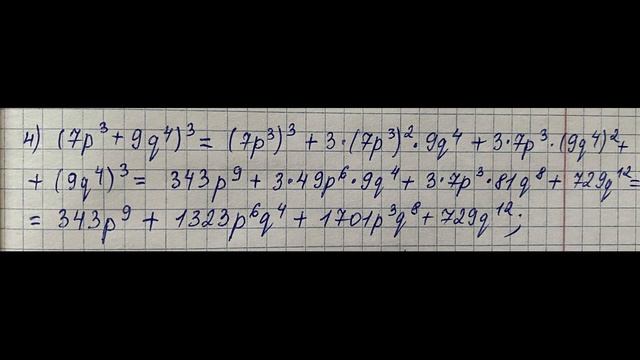 4) (7p³ + 9q⁴)³ = (7p³)³ + 3·(7p³)²·9q⁴ + 3·7p³·(9q⁴)² +
+ (9q⁴)³ = 343p⁹ + 3·49p⁶·9q⁴ + 3·7p³·81q⁸ + 729q¹² =
= 343p⁹ + 1323p⁶q⁴ + 1701p³q⁸ + 729q¹²;